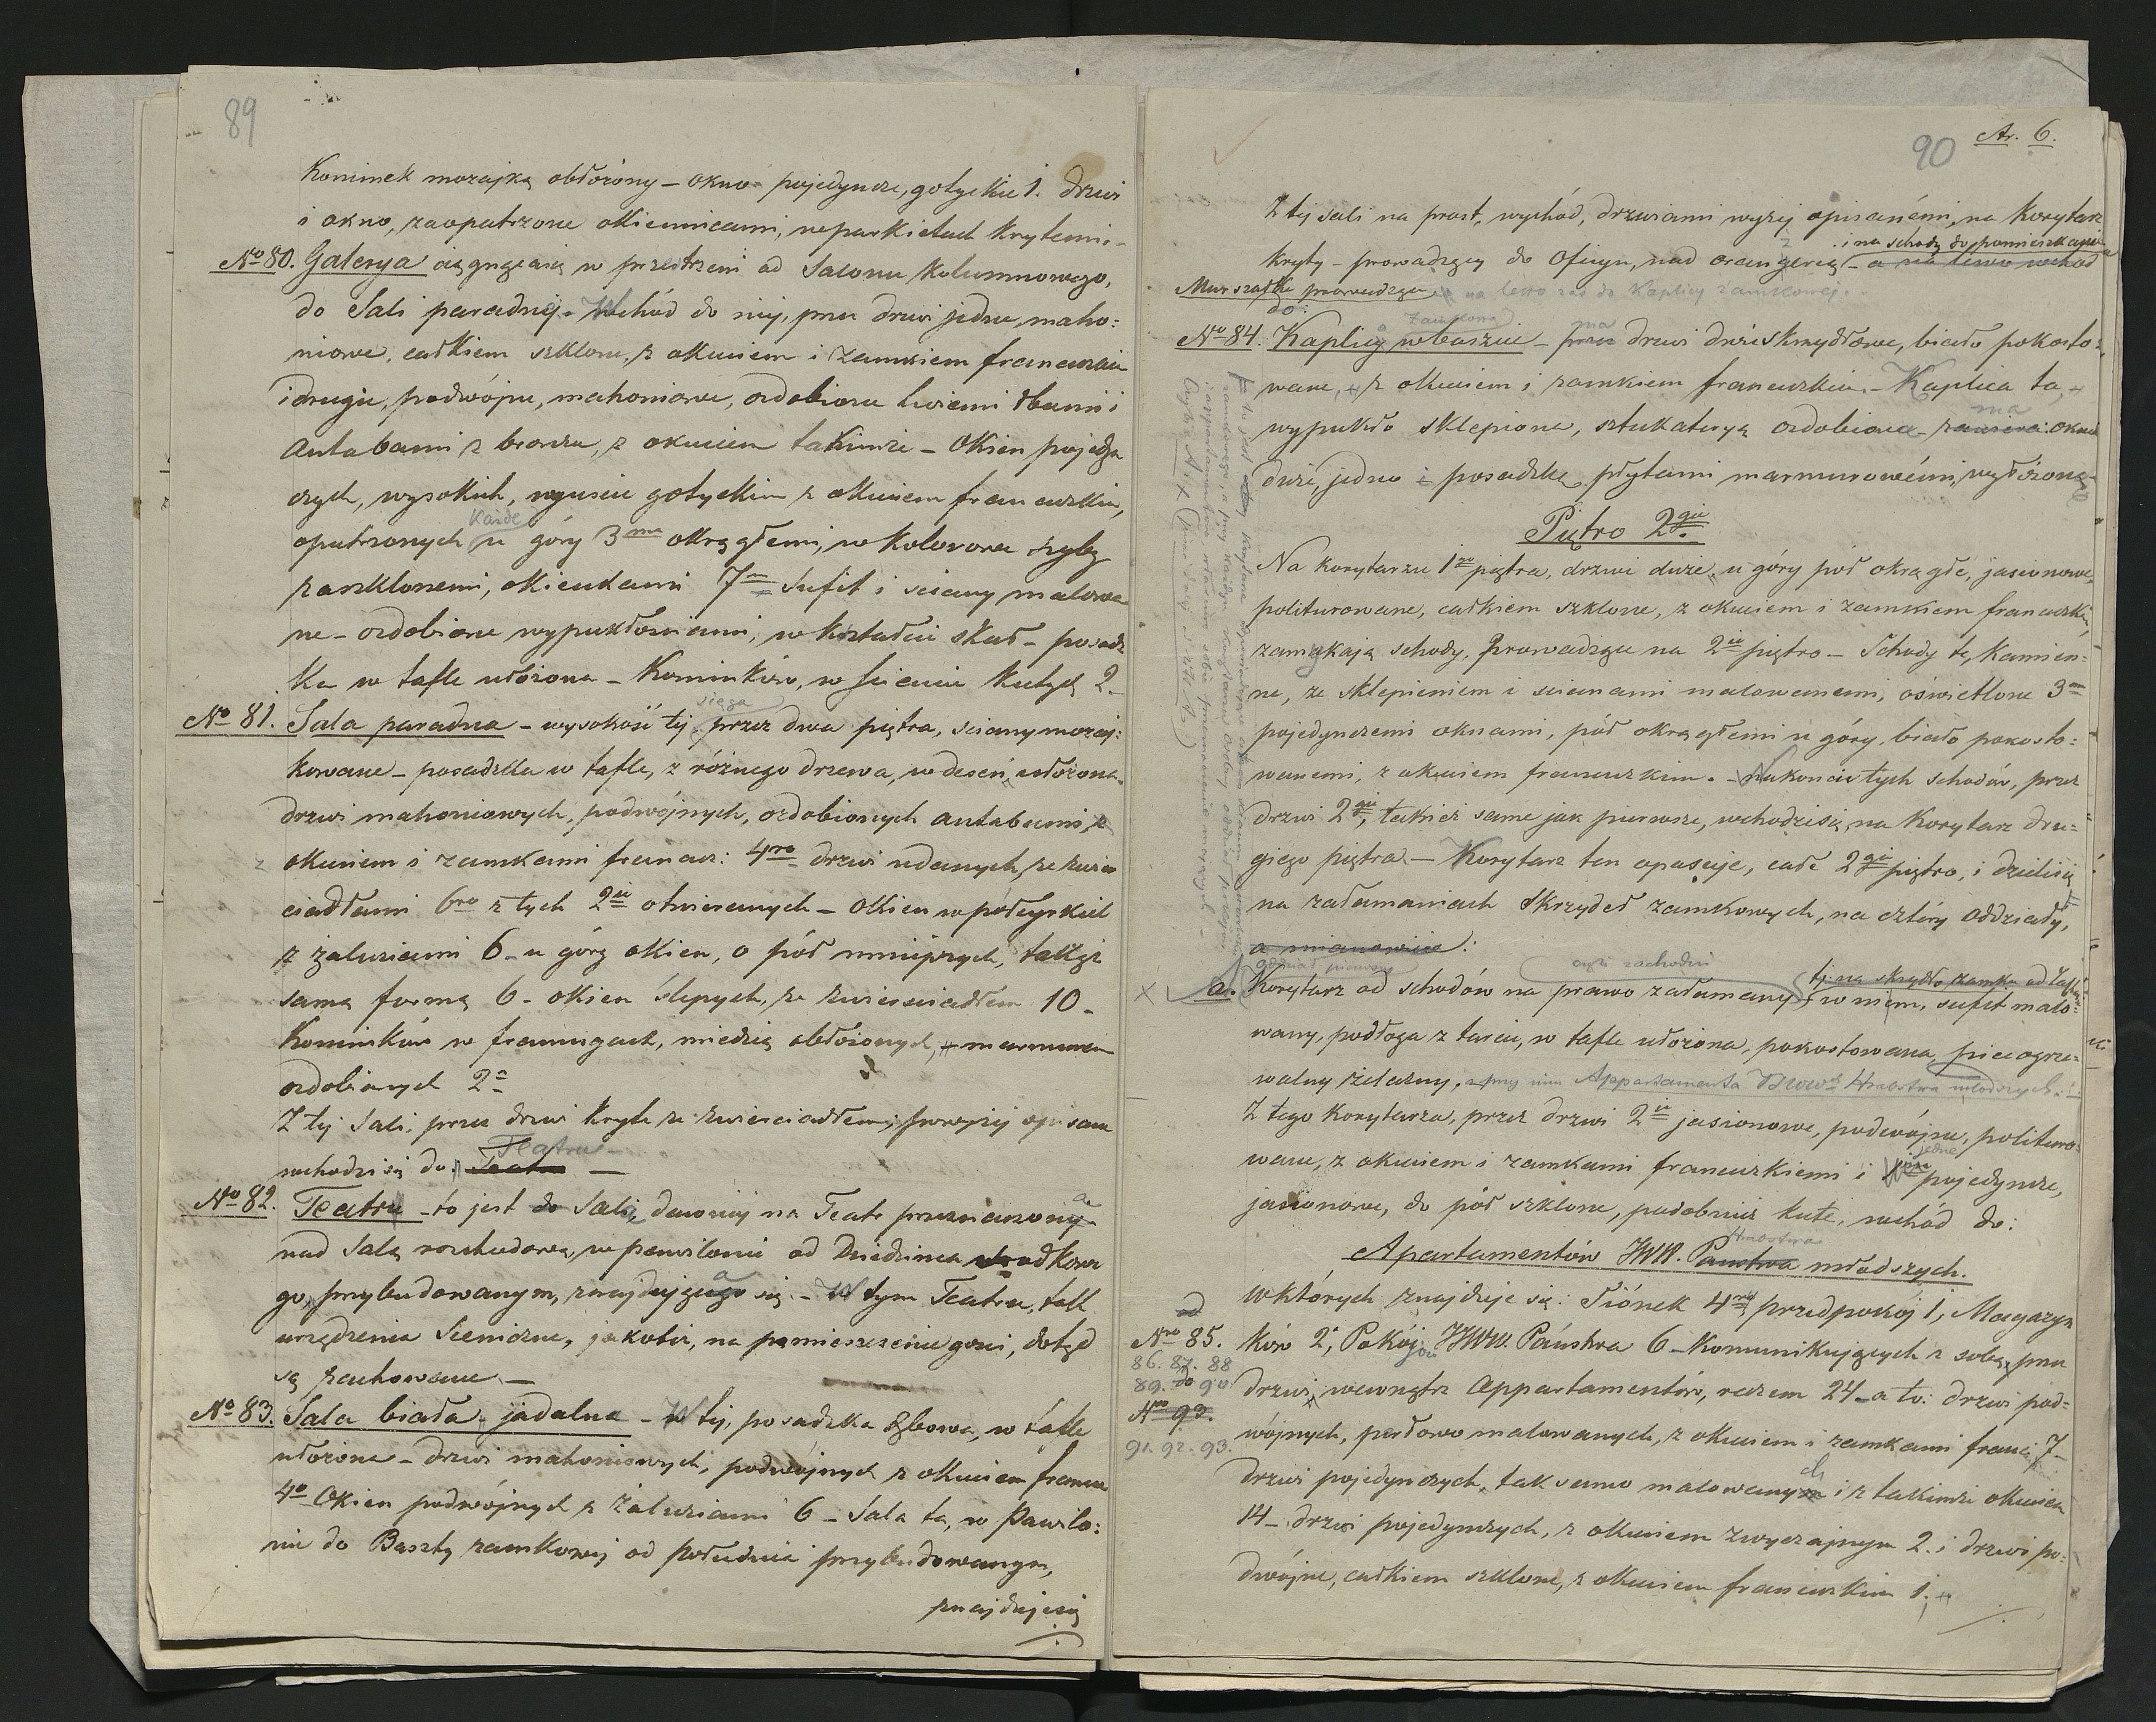 89
Kominek mozajką obłożony – okno pojedyncze, gotyckie 1. drzwi
i okno, zaopatrzone okiennicami, w parkietach krytemi –
No 80. Galerya ciągnącasię w przestrzeni od Salonu Kolumnowego,
do Sali paradnéj. Wchód do niéj, przez drzwi jedne, maho:
niowe, całkiem szklone, z okuciem i zamkiem francuzkim
i drugie, podwójne, mahoniowe, ozdobione lwiemi łbami i
Antabami z bronzu, z okuciem takimże – Okien pojedyn
czych, wysokich, w guście gotyckim z okuciem francuzkim,
każde
opatrzonych u góry 3ma okrągłemi, w kolorowe szyby
zaszklonemi, okienkami 7m Sufit i sciany malowa
ne – ozdobione wypukłosciami, w kształcie skał – posadz
ka w tafle ułożona – Kominków, w scianie kutych 2.
sięga
No 81. Sala paradna – wysokość téj przez dwa piętra, sciany mozaj:
kowane – posadzka w tafle, z różnego drzewa, w deseń, ułożona
drzwi mahoniowych, podwójnych, ozdobionych antabami z
okuciem i zamkami francuz: 4ro drzwi udanych, ze zwier
ciadłami 6ro z tych 2ie otwieranych – Okien w pół cyrkiel
z żaluziami 6. u góry okien, o pół mniejszych, takąż
samą formą 6 – okien ślepych, ze zwierciadłem 10 –
Kominków w framugach, miedzią obłożonych, marmurem
ozdobionych 2a
Z téj Sali, przez drzwi kryte ze zwierciadłem, powyżéj opisane
Teatru
wchodzi się do: Teatru –
No 82. Teatru – to jest do Sali, dawniéj na Teatr przeznaczonéj
nad Salą rozchodową, w pawilonie od Dziedzinca środkowe
go, przybudowanym, znajdującego się – W tym Teatru, tak
urządzenia Sceniczne, jakoteż, na pomieszczenie gosci, dotąd
są zachowane –
No 83. Sala biała – jadalna – W téj, posadzka dębowa, w tafle
ułożona – drzwi mahoniowych, podwójnych z okuciem francuz
4o Okien podwójnych z żaluziami 6 – Sala ta, w Pawilo:
nie do Baszty zamkowéj od południa przybudowanym,
znajduje się
90 Ar. 6.
Z téj Sali na prost, wychód, drzwiami wyżéj opisanémi, na Korytarz
i na schody do pomieszkania
kryty – prowadzący do Oficyn, nad oranżeryą – a na lewo wchód
Marszałka prowadzące na lewo zaś do Kaplicy zamkowéj.
do:
No 84. Kaplicy w baszcie – przez drzwi dwóskrzydłowe, biało pokosto:
ma
wane, z okuciem i zamkiem francuzkim. – Kaplica ta,
ma
wypukło sklepiona, sztukateryą ozdobiona – zawiera: okno
duże, jedno i posadzkę, płytami marmurowémi, wyłożoną
Piętro 2gie
Na korytarzu 1go piętra, drzwi duże, u góry pół okrągłe, jasionowe,
politurowane, całkiem szklone, z okuciem i zamkiem francuzkim,
zamykają schody, prowadzące na 2ie piętro – Schody te, kamien:
ne, ze sklepieniem i scianami malowanemi, oświetlone 3ma
pojedynczemi oknami, pół okrągłemi u góry, biało pokosto:
wanemi, z okuciem francuzkim. – Na końcu tych schodów, przez
drzwi 2gie, takież same jak pierwsze, wchodzi się, na Korytarz dru:
giego piętra. – Korytarz ten opasuje, całe 2gie piętro, i dzieli się
na załamaniach Skrzydeł zamkowych, na cztéry Oddziały,
a mianowicie:
oddział pierwszy czyli zachodni
a. Korytarz od schodów na prawo załamany, w niem, sufit malo:
wany, podłoga z tarcic, w tafle ułożona, pokostowana, piec ogrze:
walny żelazny, Appartamenta JWW Hrabstwa młodszych
Z tego Korytarza, przez drzwi 2ie jasionowe, podwójne, polituro:
jedne
wane, z okuciem i zamkami francuzkiemi i pojedyncze,
jasionowe, do pół szklone, podobnież kute, wchód do:
Hrabstwa
Apartamentów JWW. Państwa młodszych.
w których znajduje się: Siónek 4ry, przedpokój 1, Magazyn
od
Nro 85. ków 2, Pokój JWW. Państwa 6 – Komunikujących z sobą, przez
86. 87. 88
89. do 90.
drzwi, wewnątrz Appartamentów, razem 24 – a to: drzwi pod:
Nro 93.
wójnych, perłowo malowanych, z okuciem i zamkami franc: 7 –
91. 92. 93.
drzwi pojedynczych, tak samo malowanych i z takimże okuciem
14 – drzwi pojedynczych, z okuciem zwyczajnym 2. i drzwi po:
dwójne, całkiem szklone, z okuciem francuzkim 1.